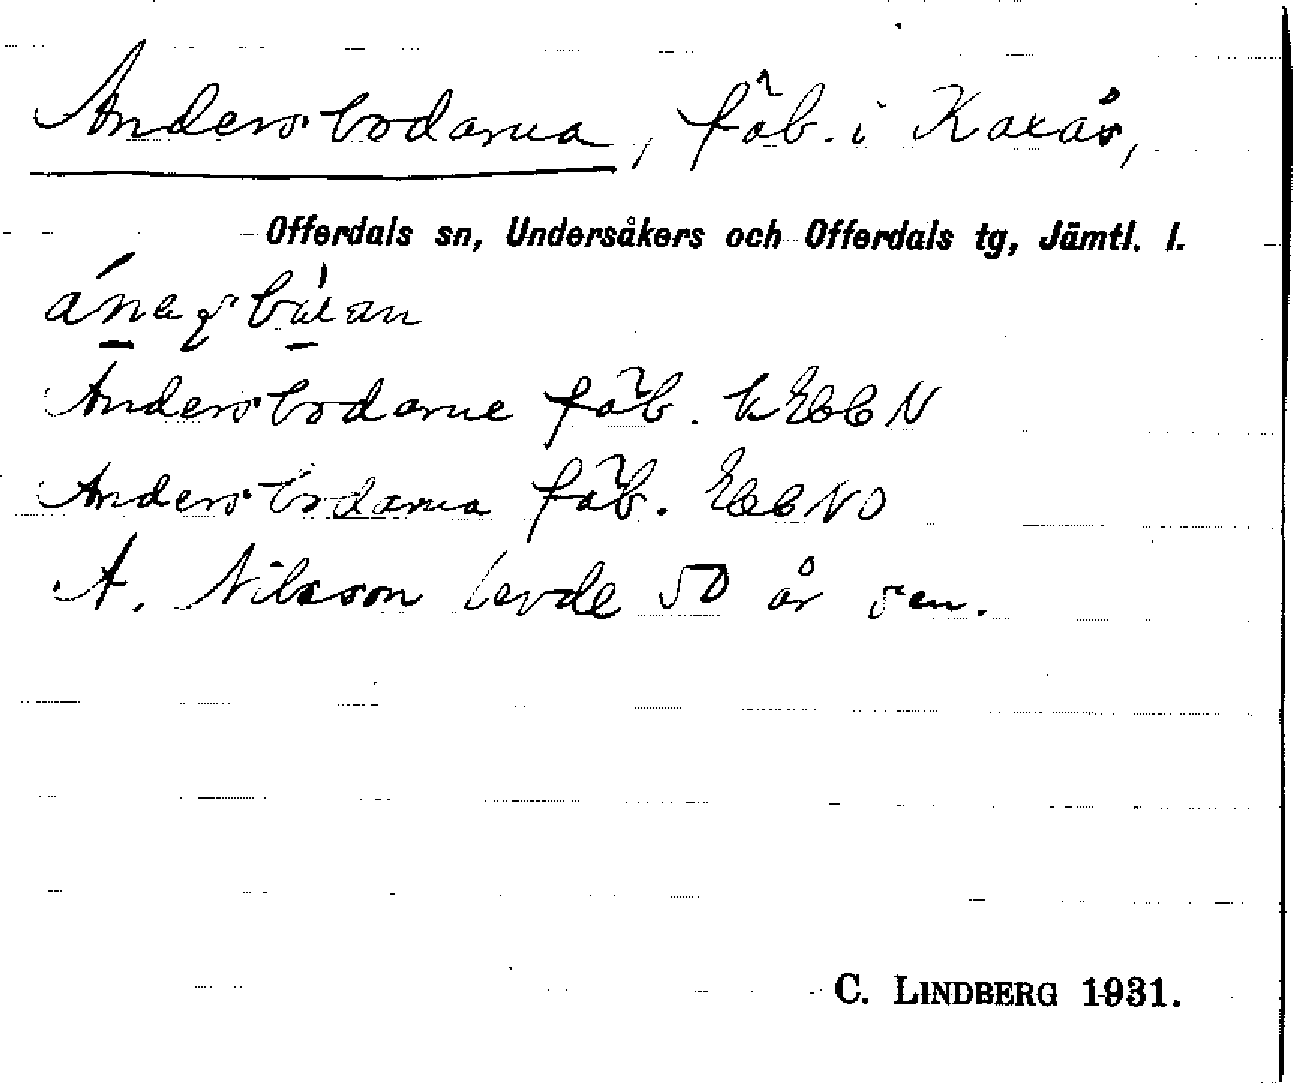 Andersbodarna, fäb. i Kaxås,
Offerdals sn, Undersåkers och Offerdals tg, Jämtl. l.
Andersbodarne fäb.
Andersbodarna fäb.
A. Nilsson levde 50 år sen.
C. LINDBERG 1931.